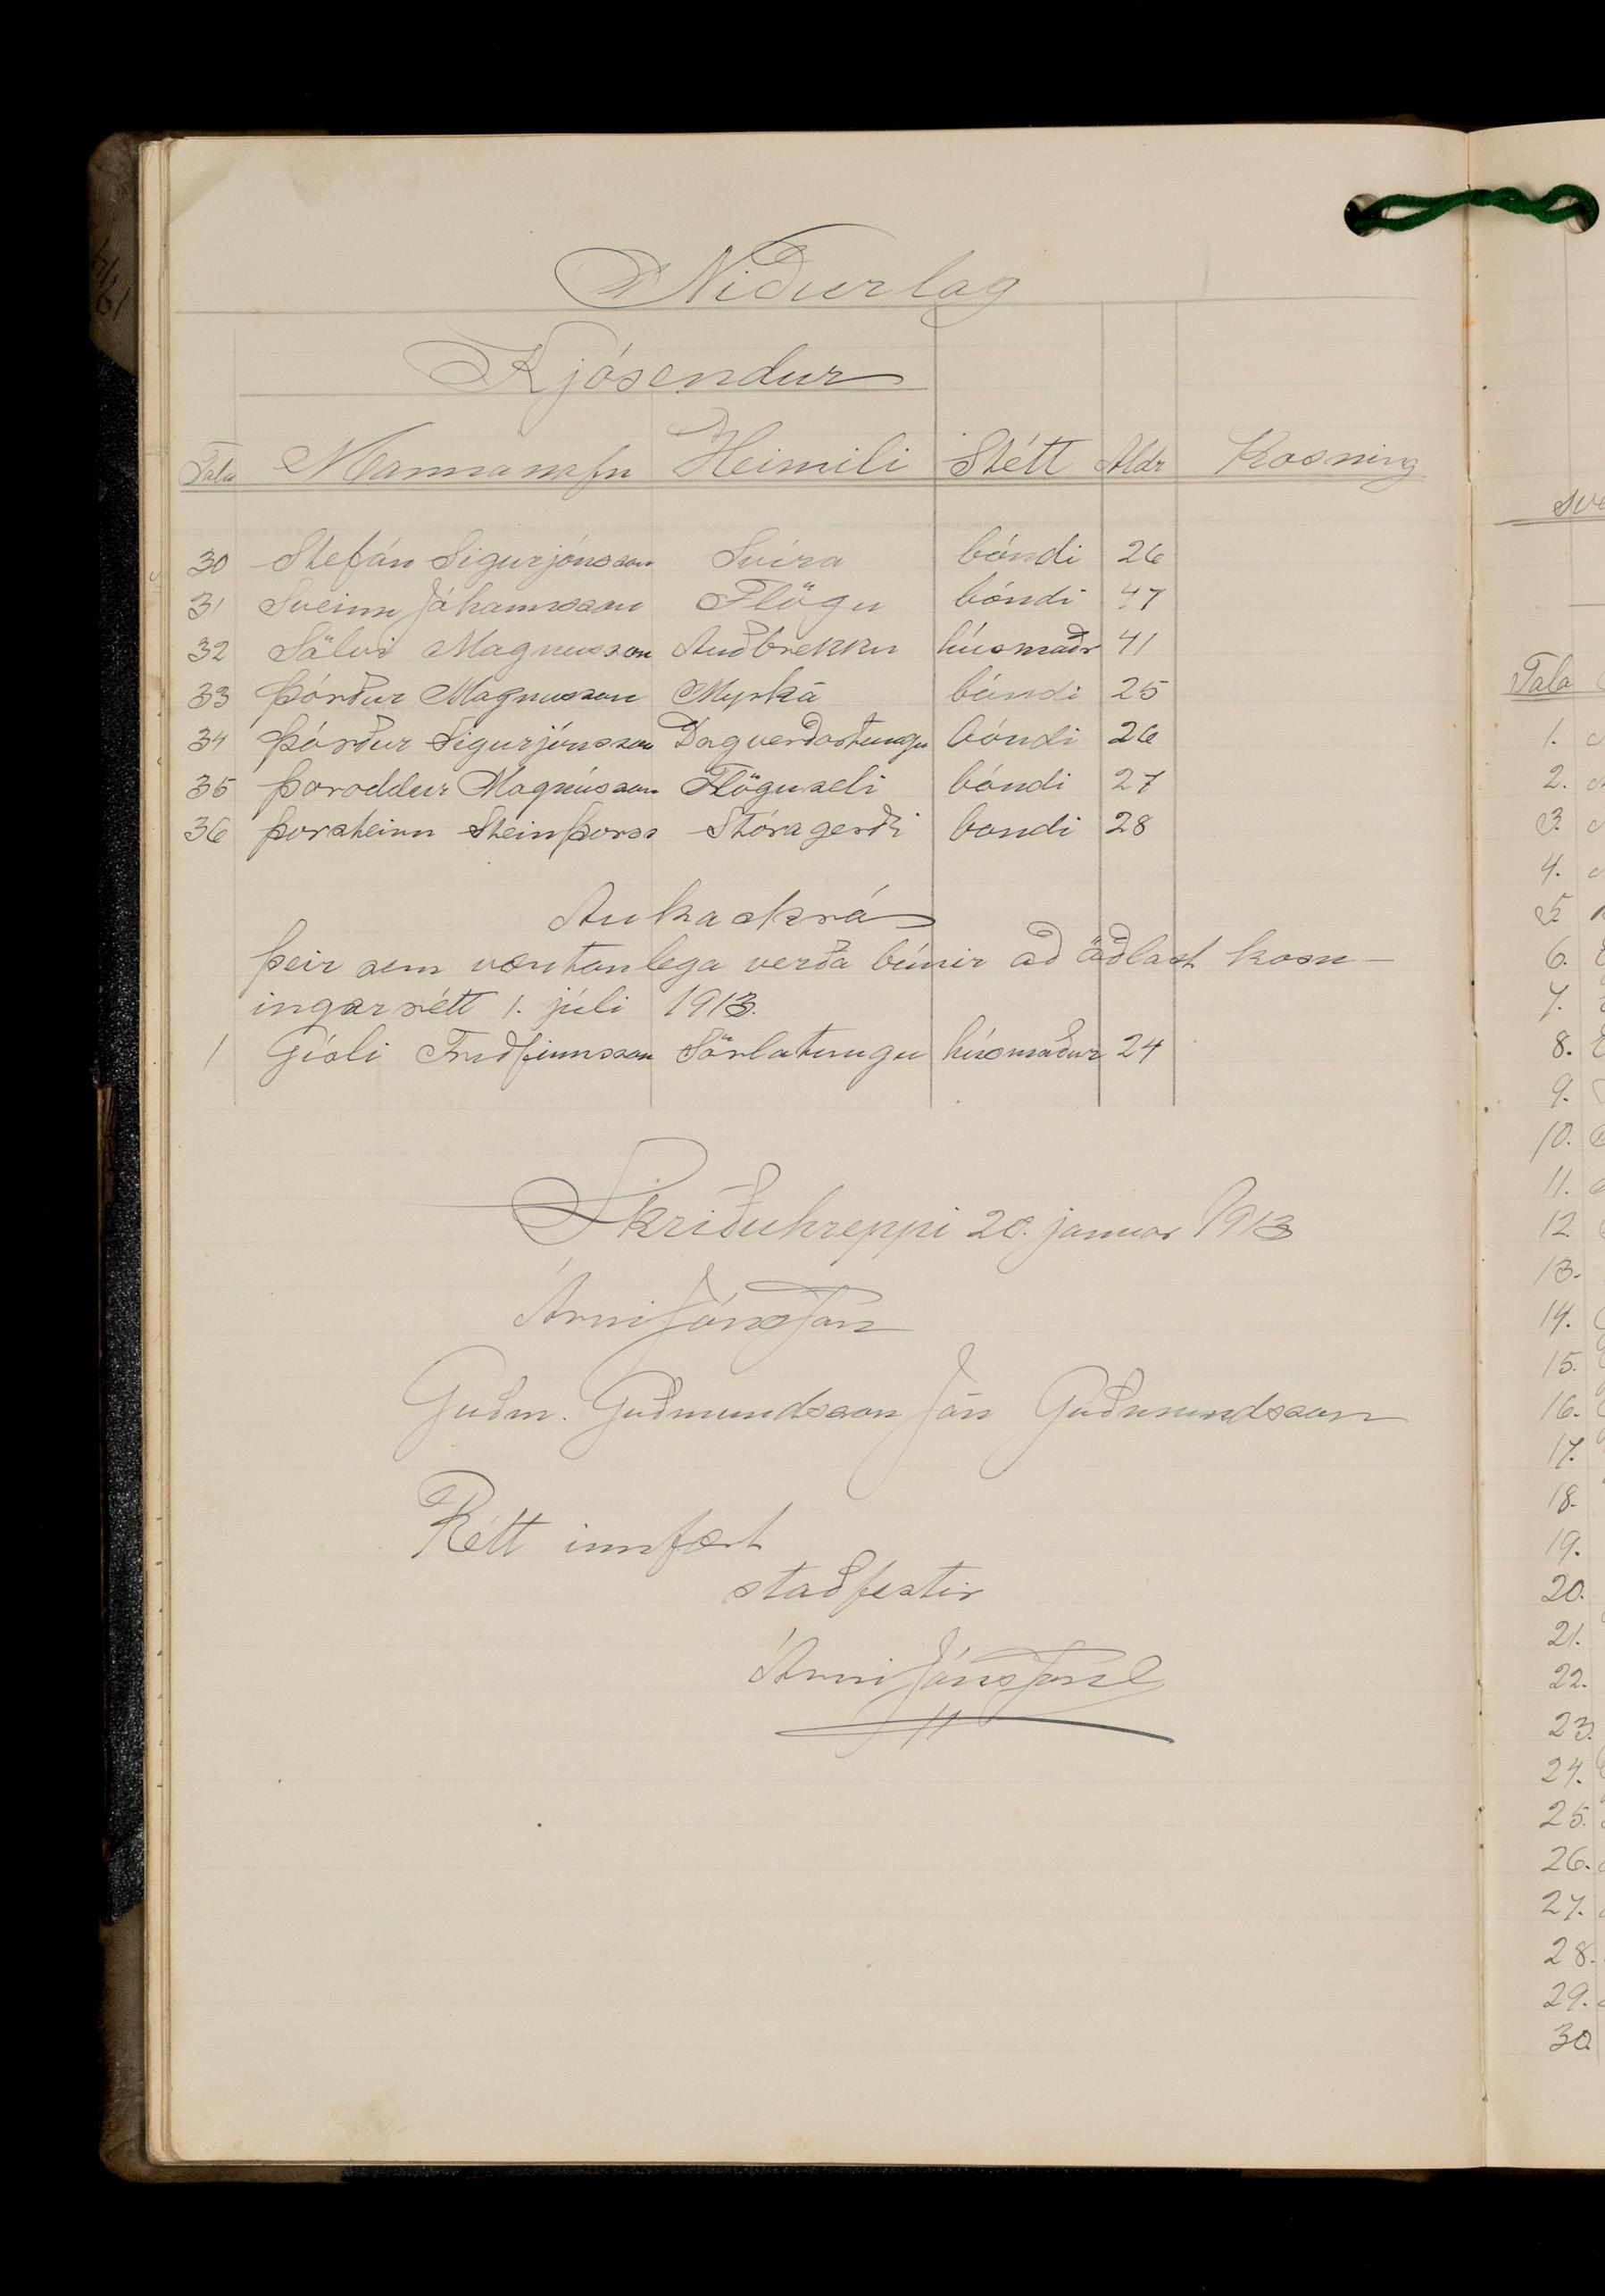 Niðurlag
Kjósendur
Tala Mannanöfn Heimili Stétt Aldr Kosning
30 Stefán Sigurjónsson Svíra bóndi 26
31 Sveinn Jóhannsson Flögu bóndi 47
32 Sölvi Magnusson Auðbrekku húsmaðr 41
33 Þórður Magnusson Myrká bóndi 25
34 Þórður Sigurjónsson Dagverðartungu bóndi 26
35 Þoroddur Magnússon Flöguseli bóndi 27
36 Þorsteinn Steinþorss Stóragerði bondi 28
Aukaskrá
Þeir sem væntanlega verða búnir að öðlast kosn-
ingarrétt 1. júli 1913.
1 Gísli Friðfinnsson Sörlatungu húsmaður 24
Skriðuhreppi 20. januar 1913
Árni Jónsson
Guðm. Guðmundsson Jón Guðmundsson
Rétt innfært
staðfestir
Árni Jónsson
Tala
1.
2.
3.
4.
5.
6.
7.
8.
9.
10.
11.
12.
13.
14.
15.
16.
17.
18.
19.
20.
21.
22.
23.
24.
25.
26.
27.
28.
29.
30